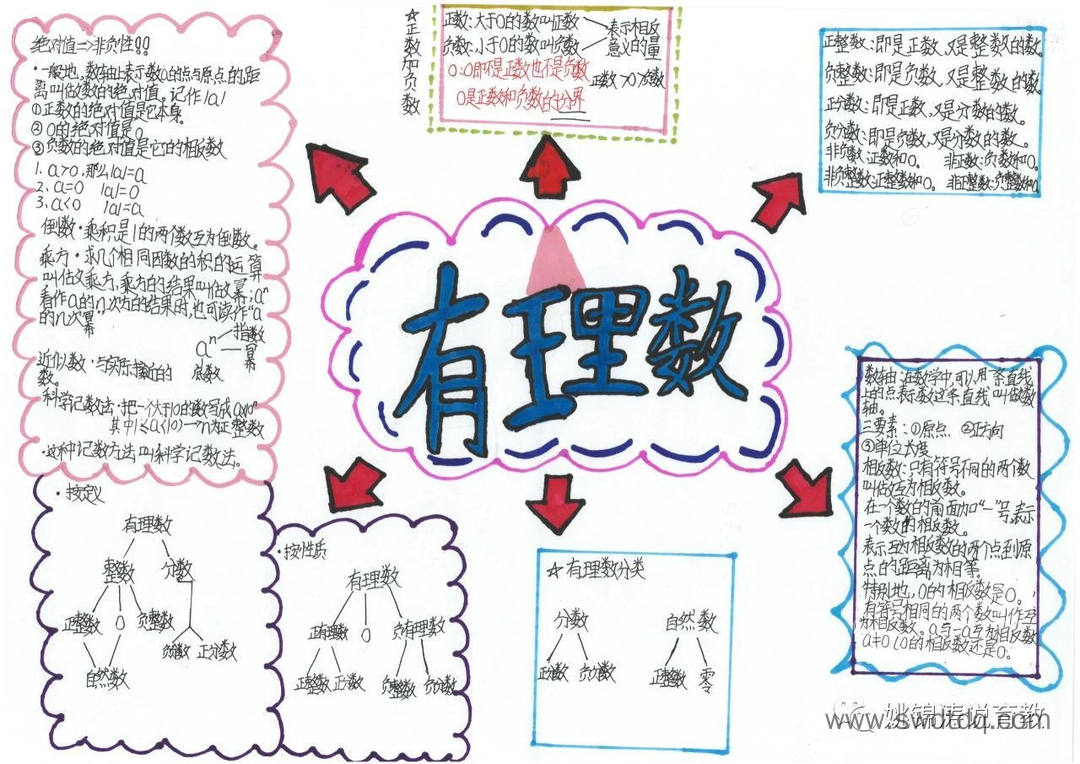 绝对值⇒非负性!!
·一般地,数轴上表示数a的点与原点的距
离叫做数的绝对值。记作|a|
①正数的绝对值是它本身。
②0的绝对值是0
③负数的绝对值是它的相反数
1. a>0,那么|a|=a
2. a=0 |a|=0
3. a<0 |a|=a
倒数·乘积是1的两个数互为倒数。
乘方·求几个相同因数的积的运算
叫做乘方,乘方的结果叫做幂;aⁿ
看作a的n次方的结果时,也可读作"a
的n次幂"
aⁿ
指数
幂
底数
近似数·与实际接近的
数。
科学记数法·把一个大于10的数写成a×10ⁿ
其中1≤a<10)→n为正整数
·这种记数方法叫科学记数法。
☆正数和负数
正数:大于0的数叫正数
负数:小于0的数叫负数
表示相反
意义的量
0:0即不是正数也不是负数
正数>0>负数
0是正数和负数的分界
正整数:即是正数,又是整数的数。
负整数:即是负数,又是整数的数。
正分数:即是正数,又是分数的数。
负分数:即是负数,又是分数的数。
非负数:正数和0。 非正数:负数和0。
非负整数:正整数和0。 非正整数:负整数和0
有理数
数轴:在数学中,可以用一条直线
上的点表示数这条直线叫做数
轴。
三要素:①原点 ②正方向
③单位长度
相反数:只有符号不同的两个数
叫做互为相反数。
在一个数的前面加"-"号,表示
一个数的相反数。
表示互为相反数的两个点到原
点的距离为相等。
特别地,0的相反数是0。
有符号相同的两个数叫作互
为相反数。a与-a互为相反数
a≠0(0的相反数还是0。
·按定义
有理数
整数 分数
正整数 0 负整数
负分数 正分数
自然数
·按性质
有理数
正有理数 0 负有理数
正整数 正分数 负整数 负分数
☆有理数分类
分数 自然数
正分数 负分数 正整数 零
姚锦涛说育教
www.swdtdq.com